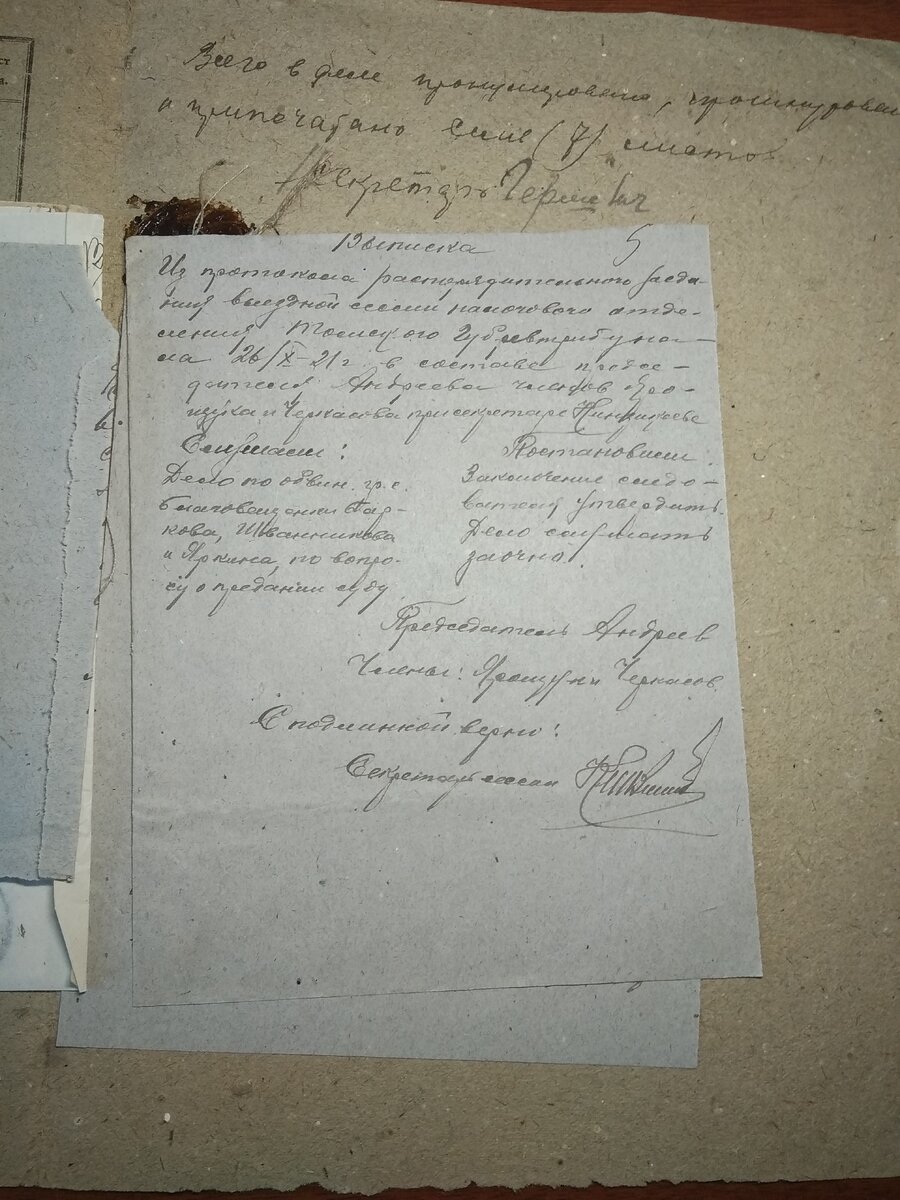 ст
а.
Всего в деле пронумеровано, прошнурован
и припечатано семь (7) листов
Секретарь
5
Выписка
Из протокола распорядительного заседа-
ния выездной сессии налогового отде-
ления Томского Губревтрибуна-
ла 26/X-21 г. в составе предсе-
дателя Андреева членов Яро-
щука и Черкасова при секретаре
Слушали:
Постановили
Дело по обвин. гр. с.
Благовещенки
кова, Шванникова
и Яркина, по вопро-
су о предании суду
Заключение следо-
вателя утвердить.
Дело слушать
заочно.
Председатель Андреев
Члены: Ярощук и Черкасов.
С подлинной верно:
Секретарь сессии